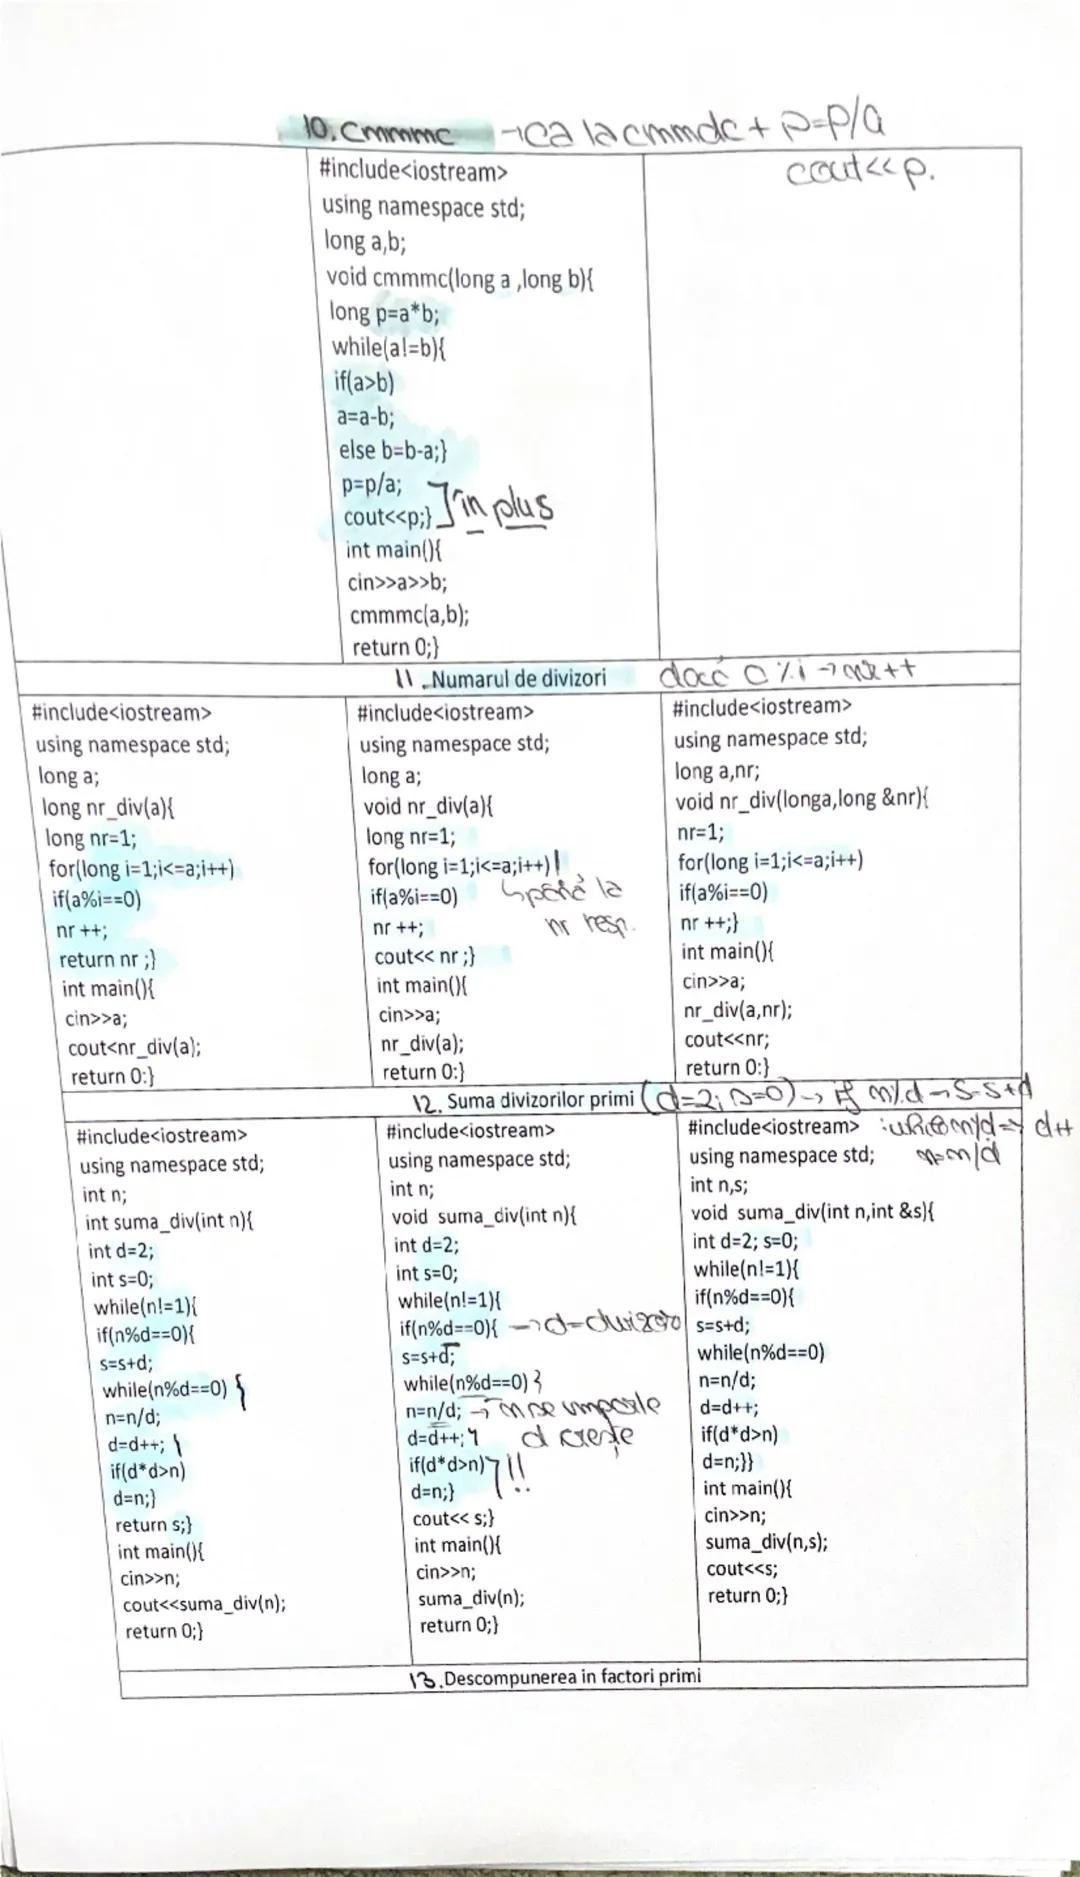 10. Cmmmc →ca la cmmdc + p=p/a
cout<<p.
#include<iostream>
using namespace std;
long a,b;
void cmmmc(long a ,long b){
long p=a*b;
while(a!=b){
if(a>b)
a=a-b;
else b=b-a;}
p=p/a;
cout<<p;} în plus
int main(){
cin>>a>>b;
cmmmc(a,b);
return 0;}
11. Numarul de divizori dacă a%i → nr++
#include<iostream>
using namespace std;
long a;
long nr_div(a){
long nr=1;
for(long i=1;i<=a;i++)
if(a%i==0)
nr ++;
return nr ;}
int main(){
cin>>a;
cout<nr_div(a);
return 0:}
#include<iostream>
using namespace std;
long a;
void nr_div(a){
long nr=1;
for(long i=1;i<=a;i++)
if(a%i==0) ↳până la
nr resp.
nr ++;
cout<< nr ;}
int main(){
cin>>a;
nr_div(a);
return 0:}
#include<iostream>
using namespace std;
long a,nr;
void nr_div(longa,long &nr){
nr=1;
for(long i=1;i<=a;i++)
if(a%i==0)
nr ++;}
int main(){
cin>>a;
nr_div(a,nr);
cout<<nr;
return 0:}
12. Suma divizorilor primi (d=2; s=0) → if n%d → s=s+d
: while n%d => d++
n=n/d
#include<iostream>
using namespace std;
int n;
int suma_div(int n){
int d=2;
int s=0;
while(n!=1){
if(n%d==0){
s=s+d;
while(n%d==0) {
n=n/d;
d=d++; }
if(d*d>n)
d=n;}
return s;}
int main(){
cin>>n;
cout<<suma_div(n);
return 0;}
#include<iostream>
using namespace std;
int n;
void suma_div(int n){
int d=2;
int s=0;
while(n!=1){
if(n%d==0){ → d=divizorio
s=s+d;
while(n%d==0) {
n=n/d; → n se imparte
d=d++; } d crește
if(d*d>n) !!
d=n;}
cout<< s;}
int main(){
cin>>n;
suma_div(n);
return 0;}
#include<iostream>
using namespace std;
int n,s;
void suma_div(int n,int &s){
int d=2; s=0;
while(n!=1){
if(n%d==0){
s=s+d;
while(n%d==0)
n=n/d;
d=d++;
if(d*d>n)
d=n;}}
int main(){
cin>>n;
suma_div(n,s);
cout<<s;
return 0;}
13. Descompunerea in factori primi